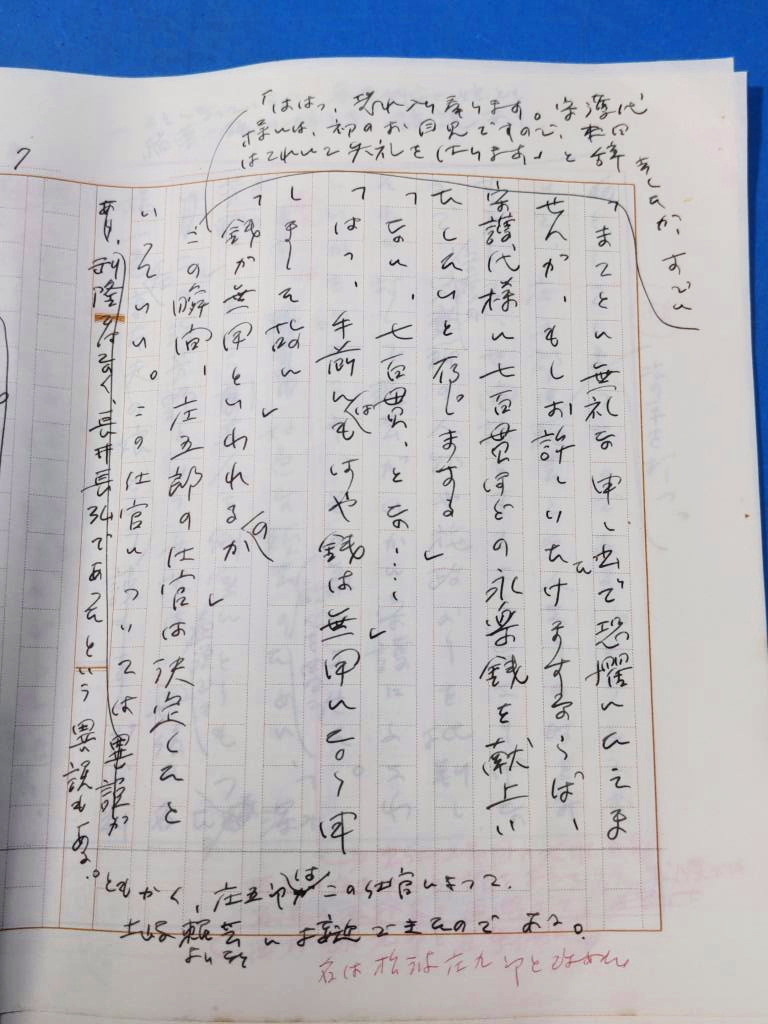 7
「ははっ、恐れ入り奉ります。守護代
様には、初のお目見ですので、本日
はこれにて失礼を仕ります」と辞
「まことに無礼な申し出で恐懼にたえま
せんが、もしお許しいただけますならば、
守護代様に七百貫ほどの永楽銭を献上い
たしたいと存じまする」
「なに、七百貫、とな……」
「はっ、手前にはもはや銭は無用になり申
しました故に」
「銭が無用といわれるか」
この瞬間、庄五郎の仕官は決定したと
いっていい。この仕官については異説が
あり、利隆ではなく、長井長弘であったという異説もある。
ともかく、庄五郎はこの仕官によって、
土岐頼芸に接近できたのである。
よしなり
名は松波庄九郎と